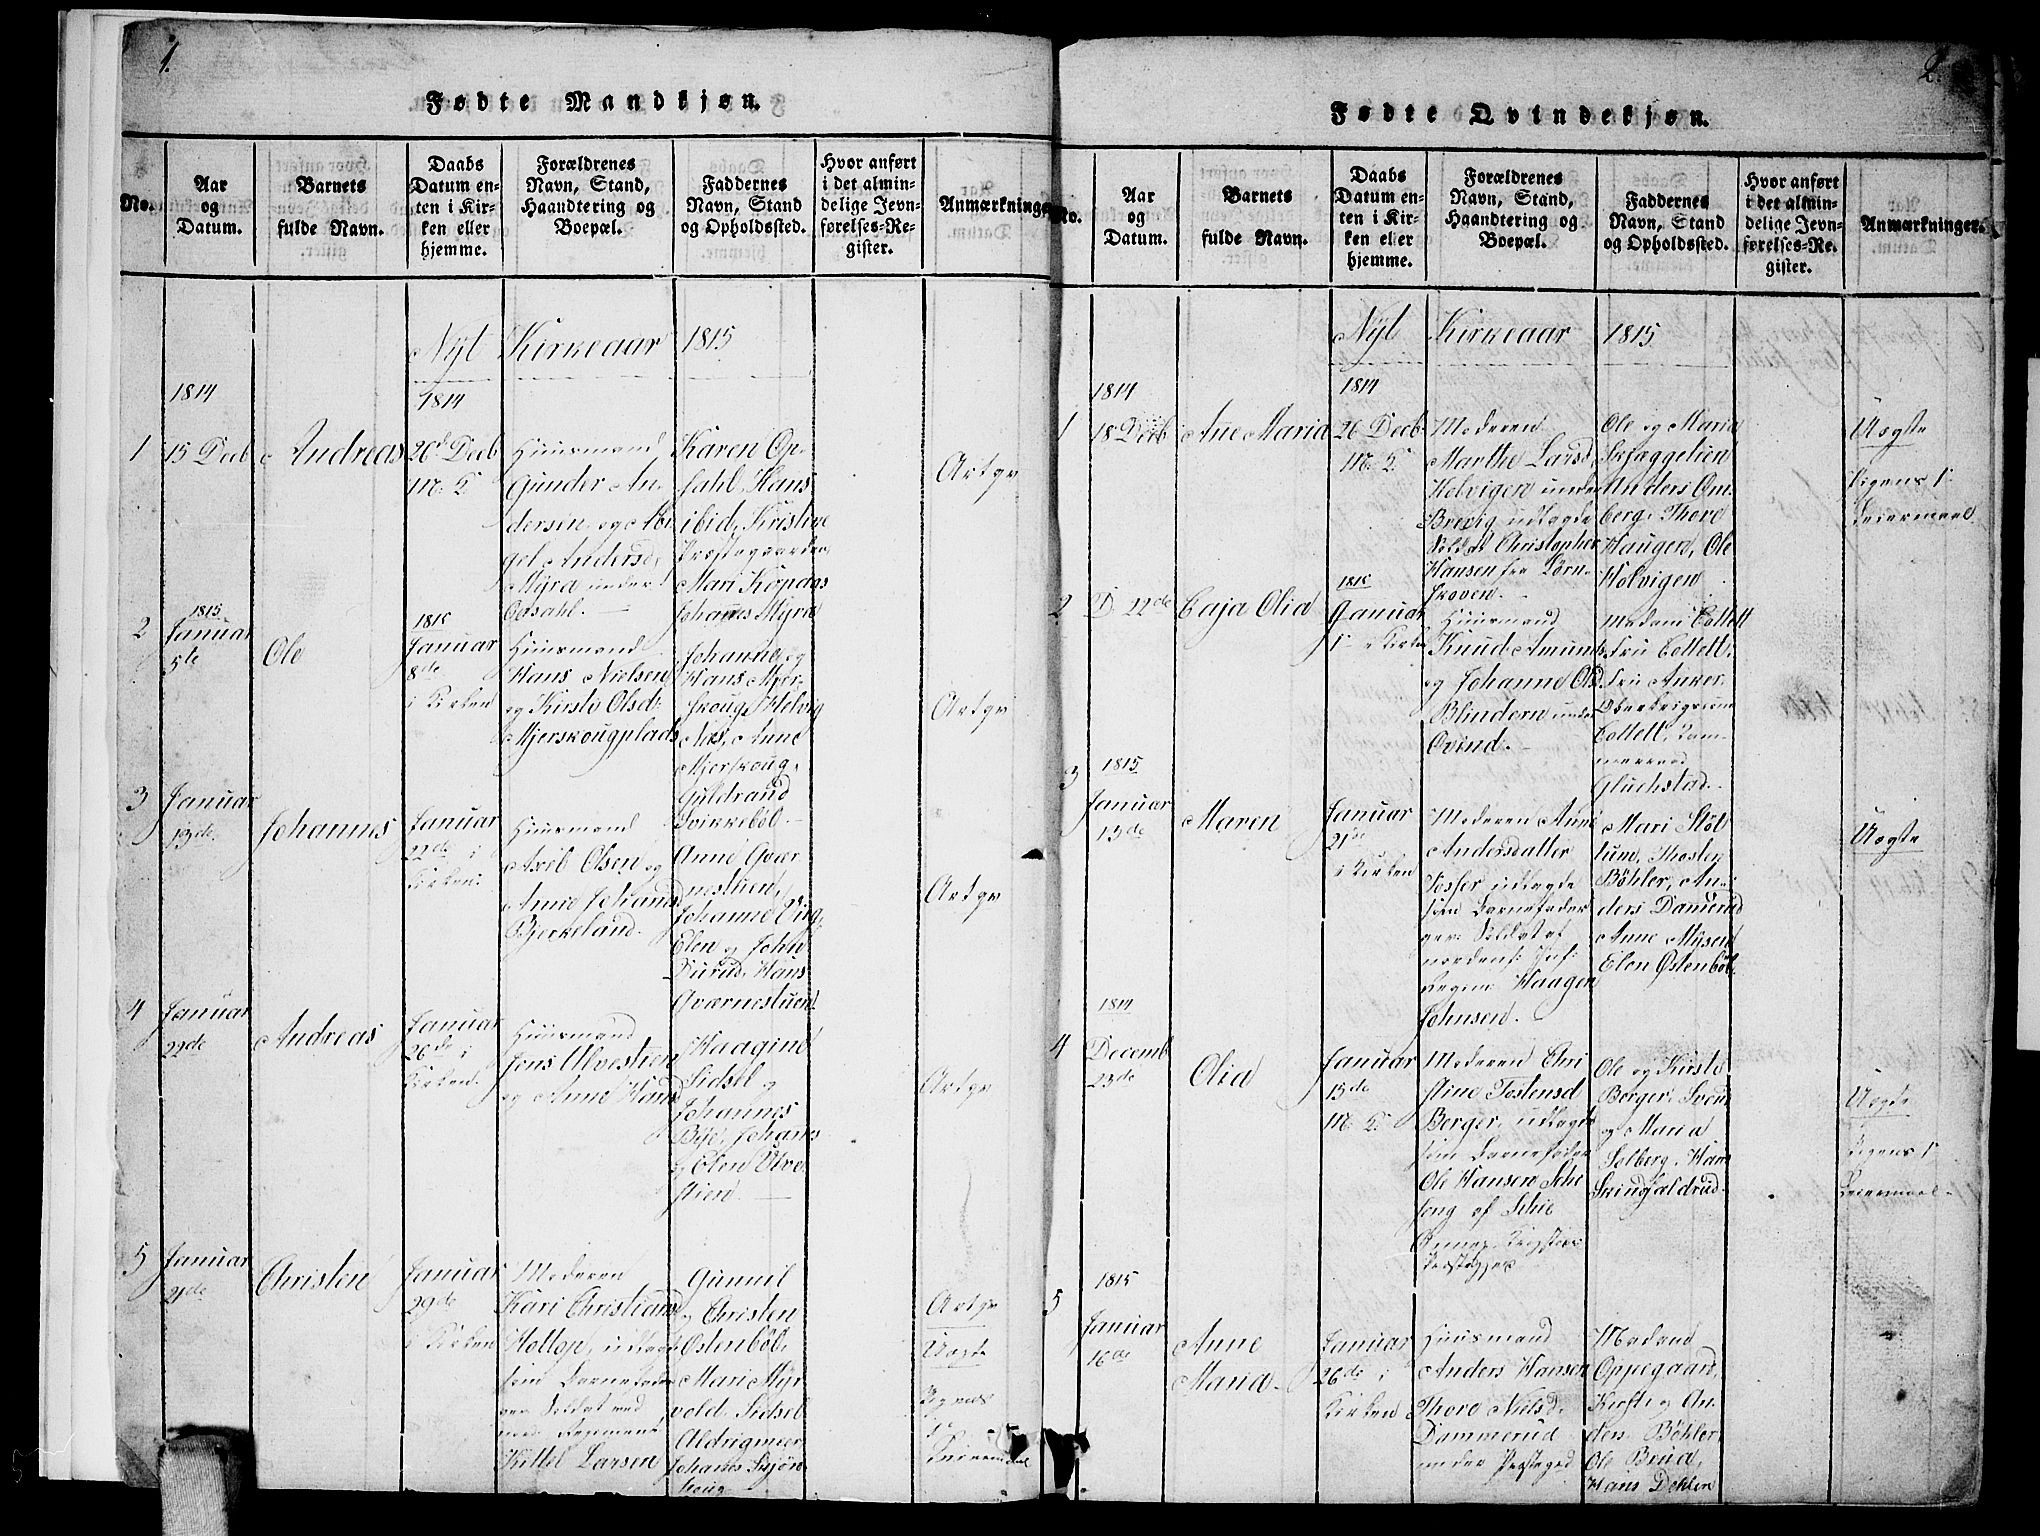 1.
Fødte Mandkjøn.
No.
Aar
og
Datum.
Barnets
fulde Navn.
Daabs
Datum en-
ten i Kir-
ken eller
hjemme.
Forældrenes
Navn, Stand,
Haandtering og
Boepæl.
Faddernes
Navn, Stand
og Opholdssted.
Hvor anført
i det almin-
delige Jevn-
førelses-Re-
gister.
Anmærkninger
Nyt Kirkeaar 1815
1
1814
15 Decb
Andreas
1814
26d Decb
M. K
Huusmand
Gunder An
dersen og
gel Andersd.
Myra under
Opsahl.
Karen Op-
sahl, Hans
ibid, Kristine
Præstegaarden
Mari
Johannes Myra
2
1815
Januar
5te
Ole
Januar
8de
i Kirken
Huusmand
Hans Nielsen
og Kirsti Olsd:
Mjerskougplads
Johanne og
Hans Mjer-
skoug, Helvig
Næs, Anne
Mjerskoug,
Guldrand
3
Januar
13de
Johannes
Januar
22de i
Kirken.
Huusmand
Axel Olsen og
Anne Johansd
Bjerkeland.
Anne Gvær
nestuen,
Johanne
Elen og John
Hans
Gværnestuen
4
Januar
22de
Andreas
Januar
26de i
Kirken.
Huusmand
Jens Ulvestien
og Anne Hansd
Haagine
Sidsel og
Johannes
Bye, Johans
og Elen Ulve
stien
5
Januar
21de
Christen
Januar
29de
i Kirken
Moderen
Kari Christiansd
som Barnefader
Soldat ved
Regiment
Kittel Larsen
Gunnil
og Christen
Ostenbøl,
Mari Myr
vold, Sidsel
Johanes
Uægte
Leiermaal
2.
Fødte Qvindekjøn.
No.
Aar
og
Datum.
Barnets
fulde Navn.
Daabs
Datum en-
ten i Kir-
ken eller
hjemme.
Forældrenes
Navn, Stand,
Haandtering og
Boepæl.
Faddernes
Navn, Stand
og Opholdssted.
Hvor anført
i det almin-
delige Jevn-
førelses-Re-
gister.
Anmærkninger.
Nyt Kirkeaar 1815
1
1814
18 Decb
Ane Maria
1814
26 Decb
M. K
Moderen
Marthe Larsd
Helvigen under
Brevig udlagde
Soldat Christopher
Hansen fra Børn-
skoven.
Ole og Maria
Skjæggelien
Anders Om-
berg, Thore
Haugen, Ole
Holvigen
Uægte
Pigens 1
Leiermaal
2
D 22de
Caja Olia
Januar
Huusmand
Knud Amunds
og Johanne Olsd
Blindern under
Ovind.
Madam Collett
Fru Collett.
Fru Anker
Collett,
Gluchstad.
3
1815
Januar
13de
Maren
Januar
21de
i Kirken
Moderen Anne
Andersdatter
udlagde
som Barnefader
Soldat af
Haagen
Johnsen.
Mari Støt
lum, Thosten
Bøhler, An-
ders Damerud
Anne Mysen
Elen Østenbøl
Uægte
4
1814
Decemb
23de
Olia
Januar
15de
M. K
Moderen Chri
stine Tostensd
Berger, udlagde
som Barnefader
Ole Hansen Schie
Ole og Kirsti
Berger, Svend
og Maria
Solberg, Hans
Uægte
Pigens 1
Leiermaal
5
1815
Januar
16de
Anne
Maria
Januar
26de i
Kirken
Huusmand
Anders Hansen
Thore Nielsd.
Dammerud
under Præstegrd
Madam
Oppegaard,
Kirsti og An-
ders Bøhler,
Ole Brua,
Hans Dehlen